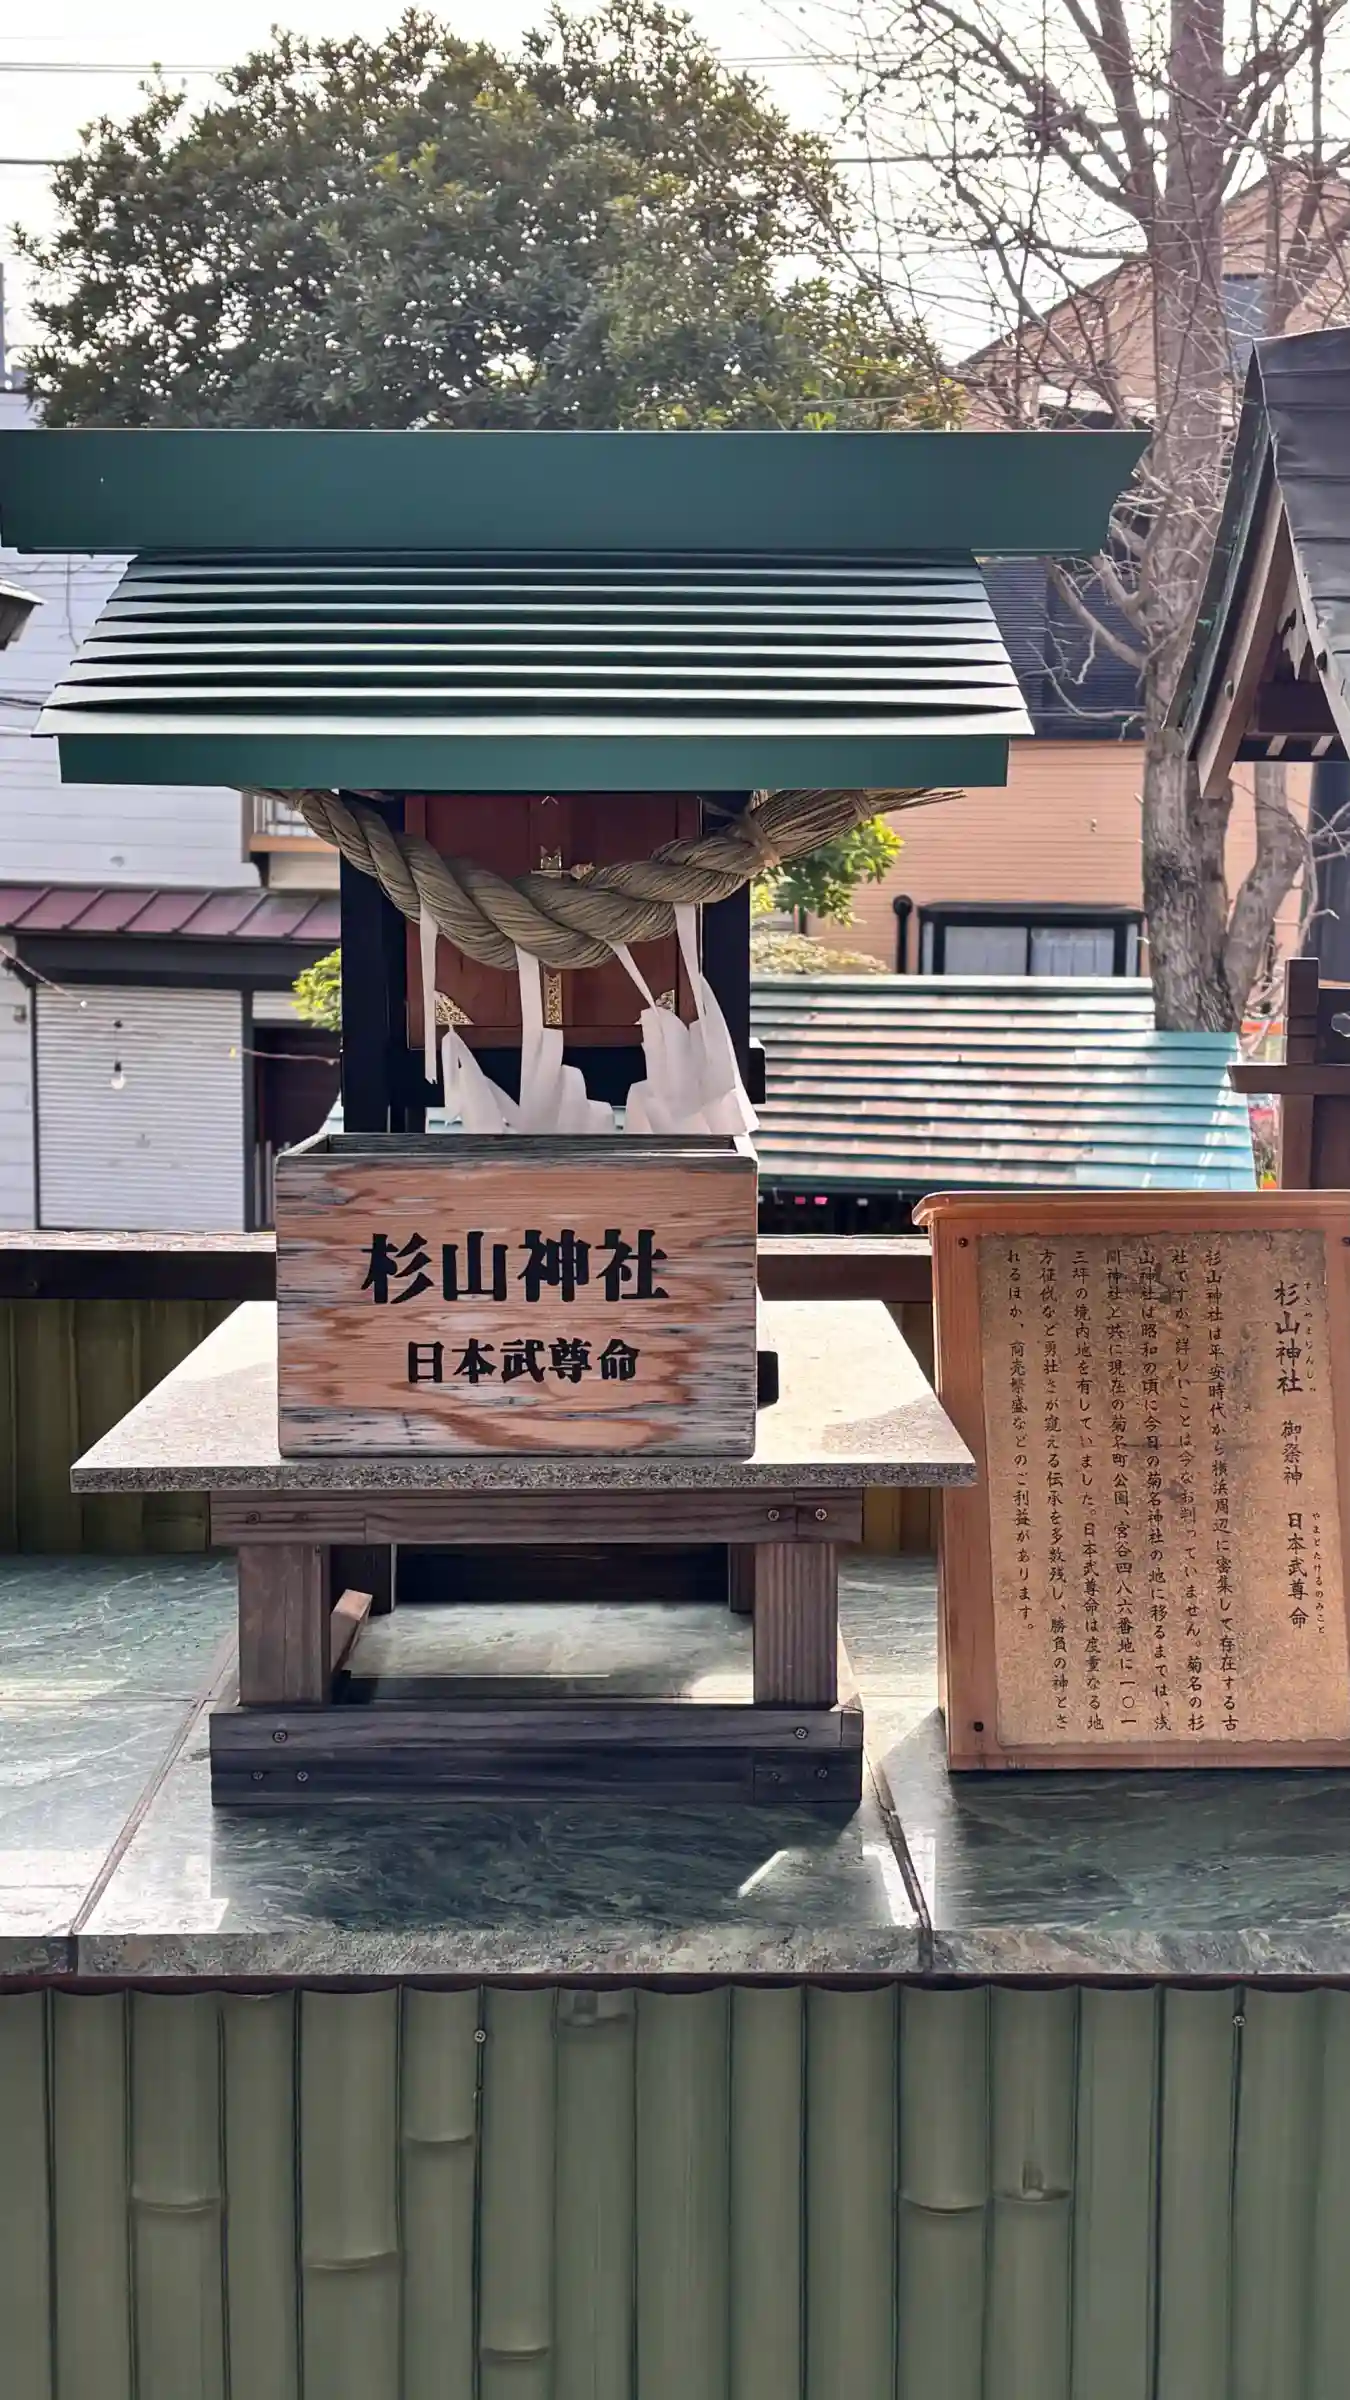 杉山神社
日本武尊命
すぎやまじんじゃ
杉山神社 御祭神 日本武尊命
やまとたけるのみこと
杉山神社は平安時代から横浜周辺に密集して存在する古
社ですが、詳しいことは今なお判っていません。菊名の杉
山神社は昭和の頃に今日の菊名神社の地に移るまでは、浅
間神社と共に現在の菊名町公園、宮谷四八六番地に一〇一
三坪の境内地を有していました。日本武尊命は度重なる地
方征伐など勇壮さが窺える伝承を多数残し、勝負の神とさ
れるほか、商売繁盛などのご利益があります。